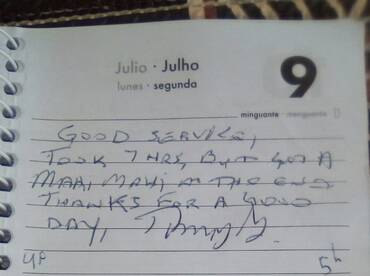 Julio · Julho
lunes · segunda
9
minguante · menguante
GOOD SERVICE,
TOOK 7 HRS, BUT GOT A
MAHI MAHI IN THE END
THANKS FOR A GOOD
DAY,
UP
5h